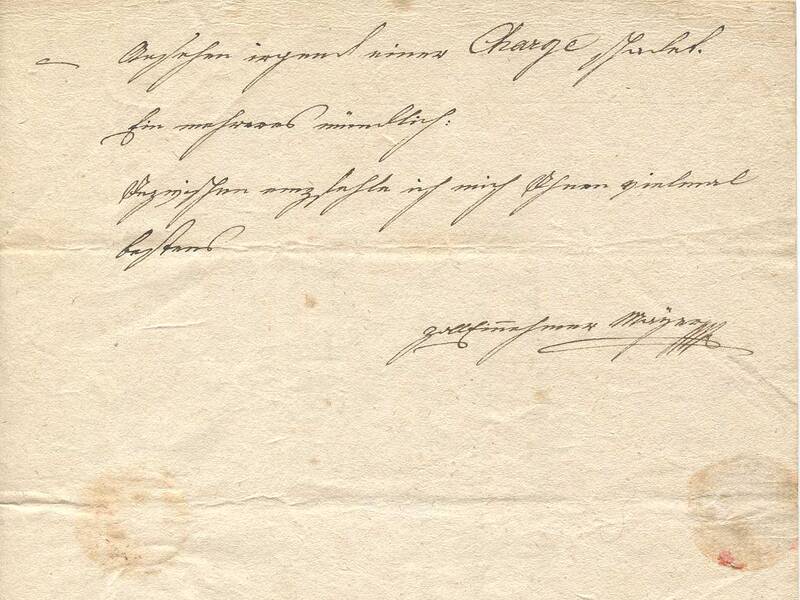 Ansehen irgend einer Charge schadet.
Ein mehreres mündlich:
Inzwischen empfehle ich mich Ihnen vielmal
bestens
Zolleinnehmer Mayer